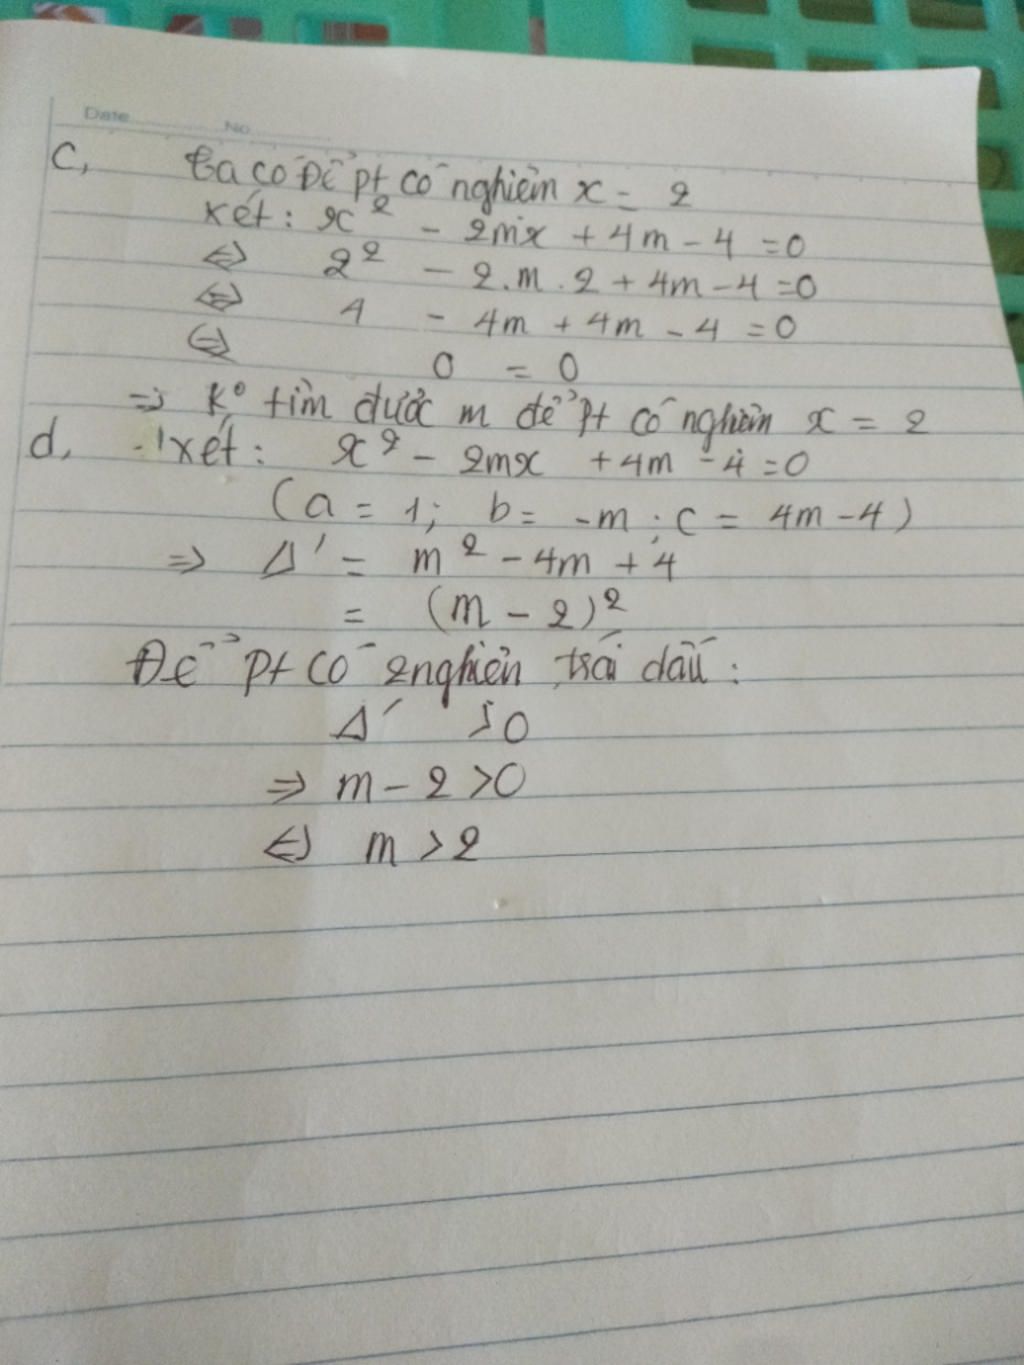 Date No
c, ta có Để pt có nghiệm x = 2
xét: x² - 2mx + 4m - 4 = 0
⇔ 2² - 2.m.2 + 4m - 4 = 0
⇔ 4 - 4m + 4m - 4 = 0
⇔ 0 = 0
⇒ K° tìm được m để pt có nghiệm x = 2
d, xét: x² - 2mx + 4m - 4 = 0
(a = 1; b = -m; c = 4m - 4)
⇒ Δ' = m² - 4m + 4
= (m - 2)²
Để pt có 2 nghiện trái dấu:
Δ' > 0
⇒ m - 2 > 0
⇔ m > 2